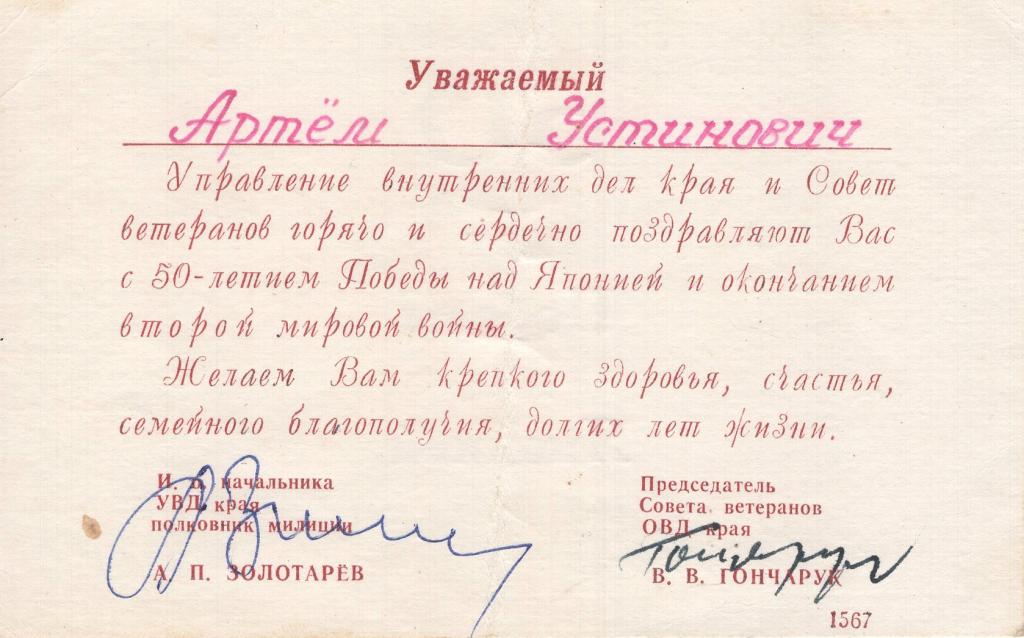 Уважаемый
Артём Устинович
Управление внутренних дел края и Совет
ветеранов горячо и сердечно поздравляют Вас
с 50-летием Победы над Японией и окончанием
второй мировой войны.
Желаем Вам крепкого здоровья, счастья,
семейного благополучия, долгих лет жизни.
И. о. начальника
УВД края
полковник милиции
А. П. ЗОЛОТАРЁВ
Председатель
Совета ветеранов
ОВД края
В. В. ГОНЧАРУК
1567